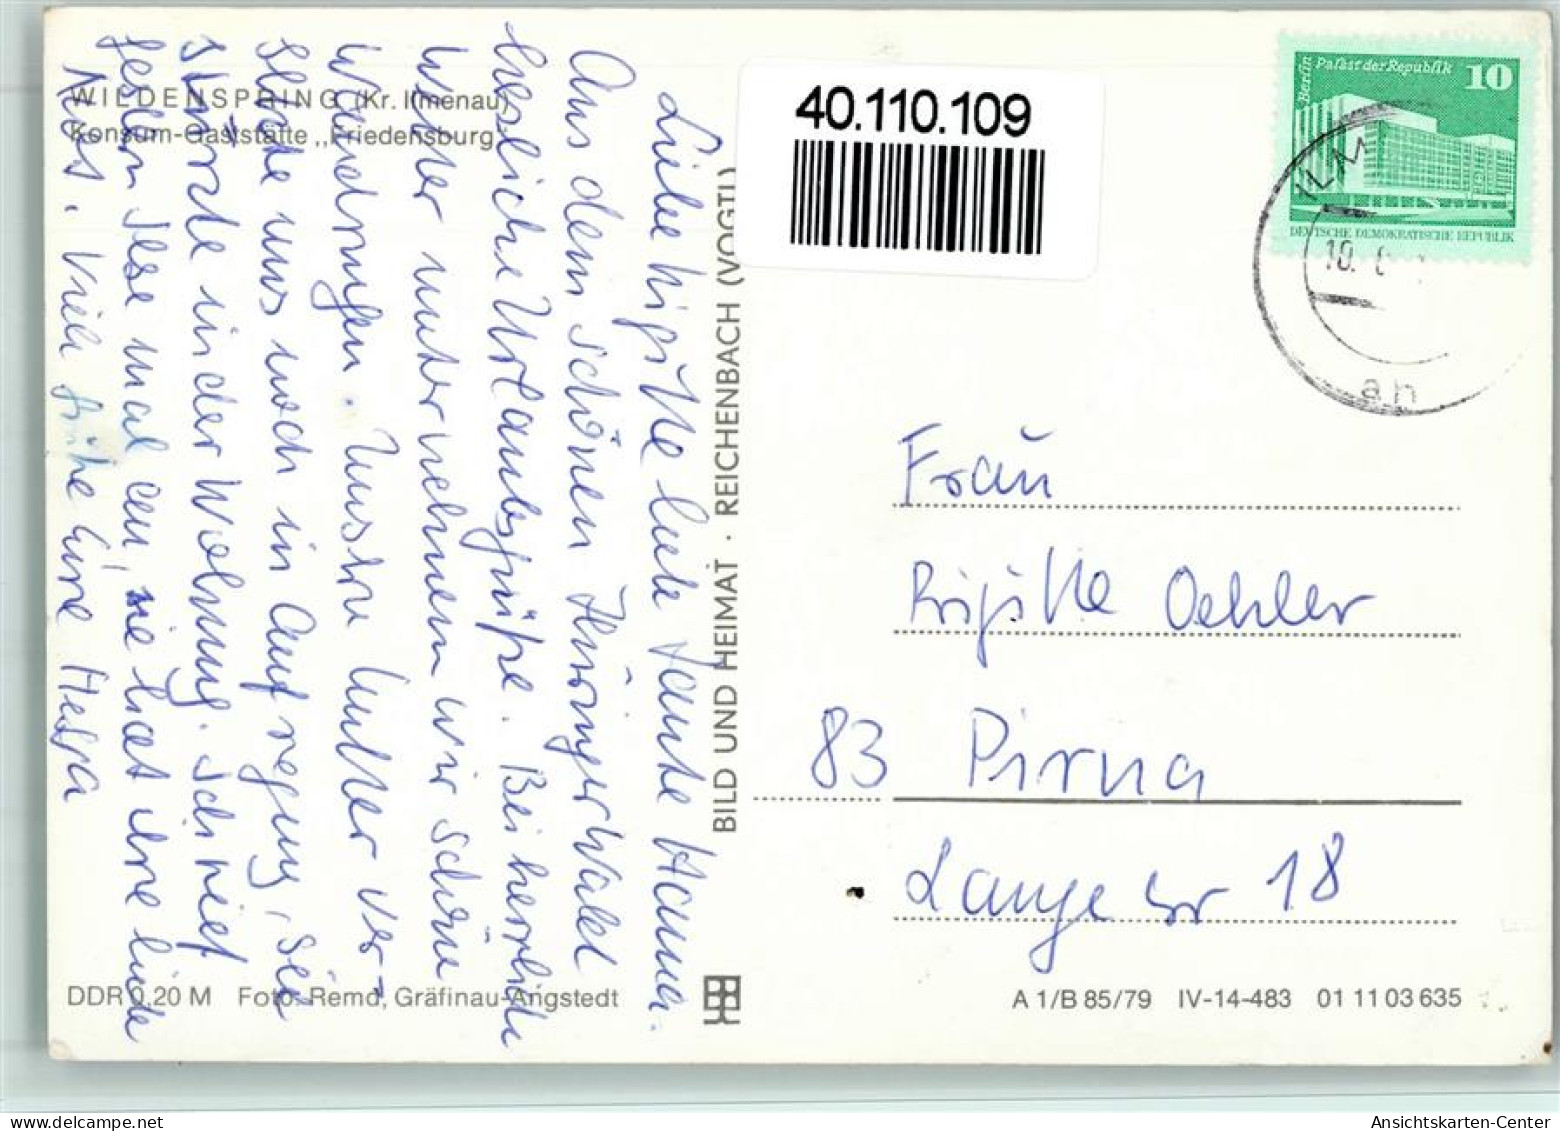 WILDENSPRING (Kr. Ilmenau)
Konsum-Gaststätte „Friedensburg"
40.110.109
Berlin Palast der Republik 10
DEUTSCHE DEMOKRATISCHE REPUBLIK
ILM
10.
an
Liebe Brigitte liebe Tante Hanna.
Aus dem schönen Thüringer Wald
herzliche Urlaubsgrüße. Bei herrlichem
Wetter unternehmen wir schöne
Wandrungen. Unsre Mutter ver-
setzte uns noch in Aufregung, sie
stürzte in der Wohnung. Ich rief
gestern Ilse mal an, sie hat ihre liebe
Not. Viele Grüße Eure Helga
BILD UND HEIMAT · REICHENBACH (VOGTL)
Frau
Brigitte Oehler
83 Pirna
Lange Str 18
DDR 0,20 M Foto: Remd, Gräfinau-Angstedt
A 1/B 85/79 IV-14-483 01 11 03 635
Ansichtskarten-Center
www.delcampe.net